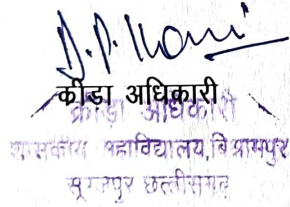 कीड़ा अधिकारी
क्रीड़ा अधिकारी
शासकीय महाविद्यालय, विश्रामपुर
सूरजपुर छत्तीसगढ़